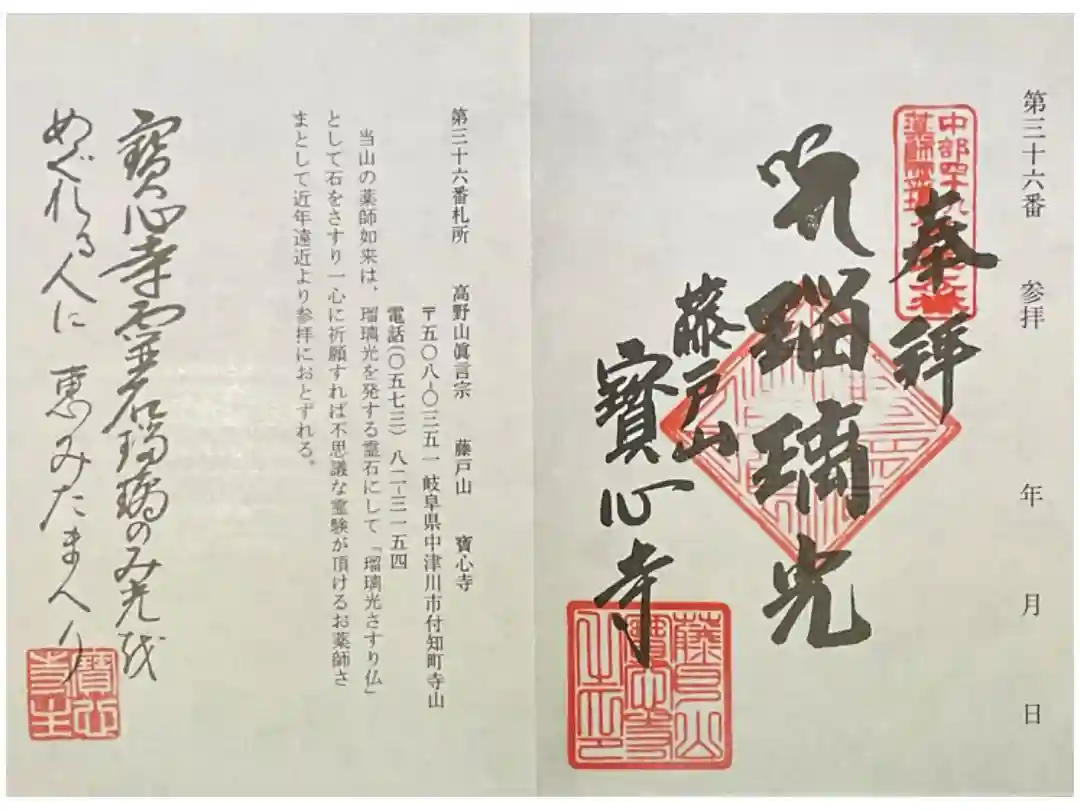 第三十六番 参拝 年 月 日
中部四十九
薬師霊場
奉拝
瑠璃光
藤戸山
寶心寺
藤戸山
寶心寺
之印
第三十六番札所 高野山眞言宗 藤戸山 寶心寺
〒五〇八-〇三五一 岐阜県中津川市付知町寺山
電話(〇五七三)八二-三一五四
当山の薬師如来は、瑠璃光を発する霊石にして「瑠璃光さすり仏」
として石をさすり一心に祈願すれば不思議な霊験が頂けるお薬師さ
まとして近年遠近より参拝におとずれる。
寶心寺霊石瑠璃のみ光
めぐれる人に 恵みたまへり
寶心
寺主